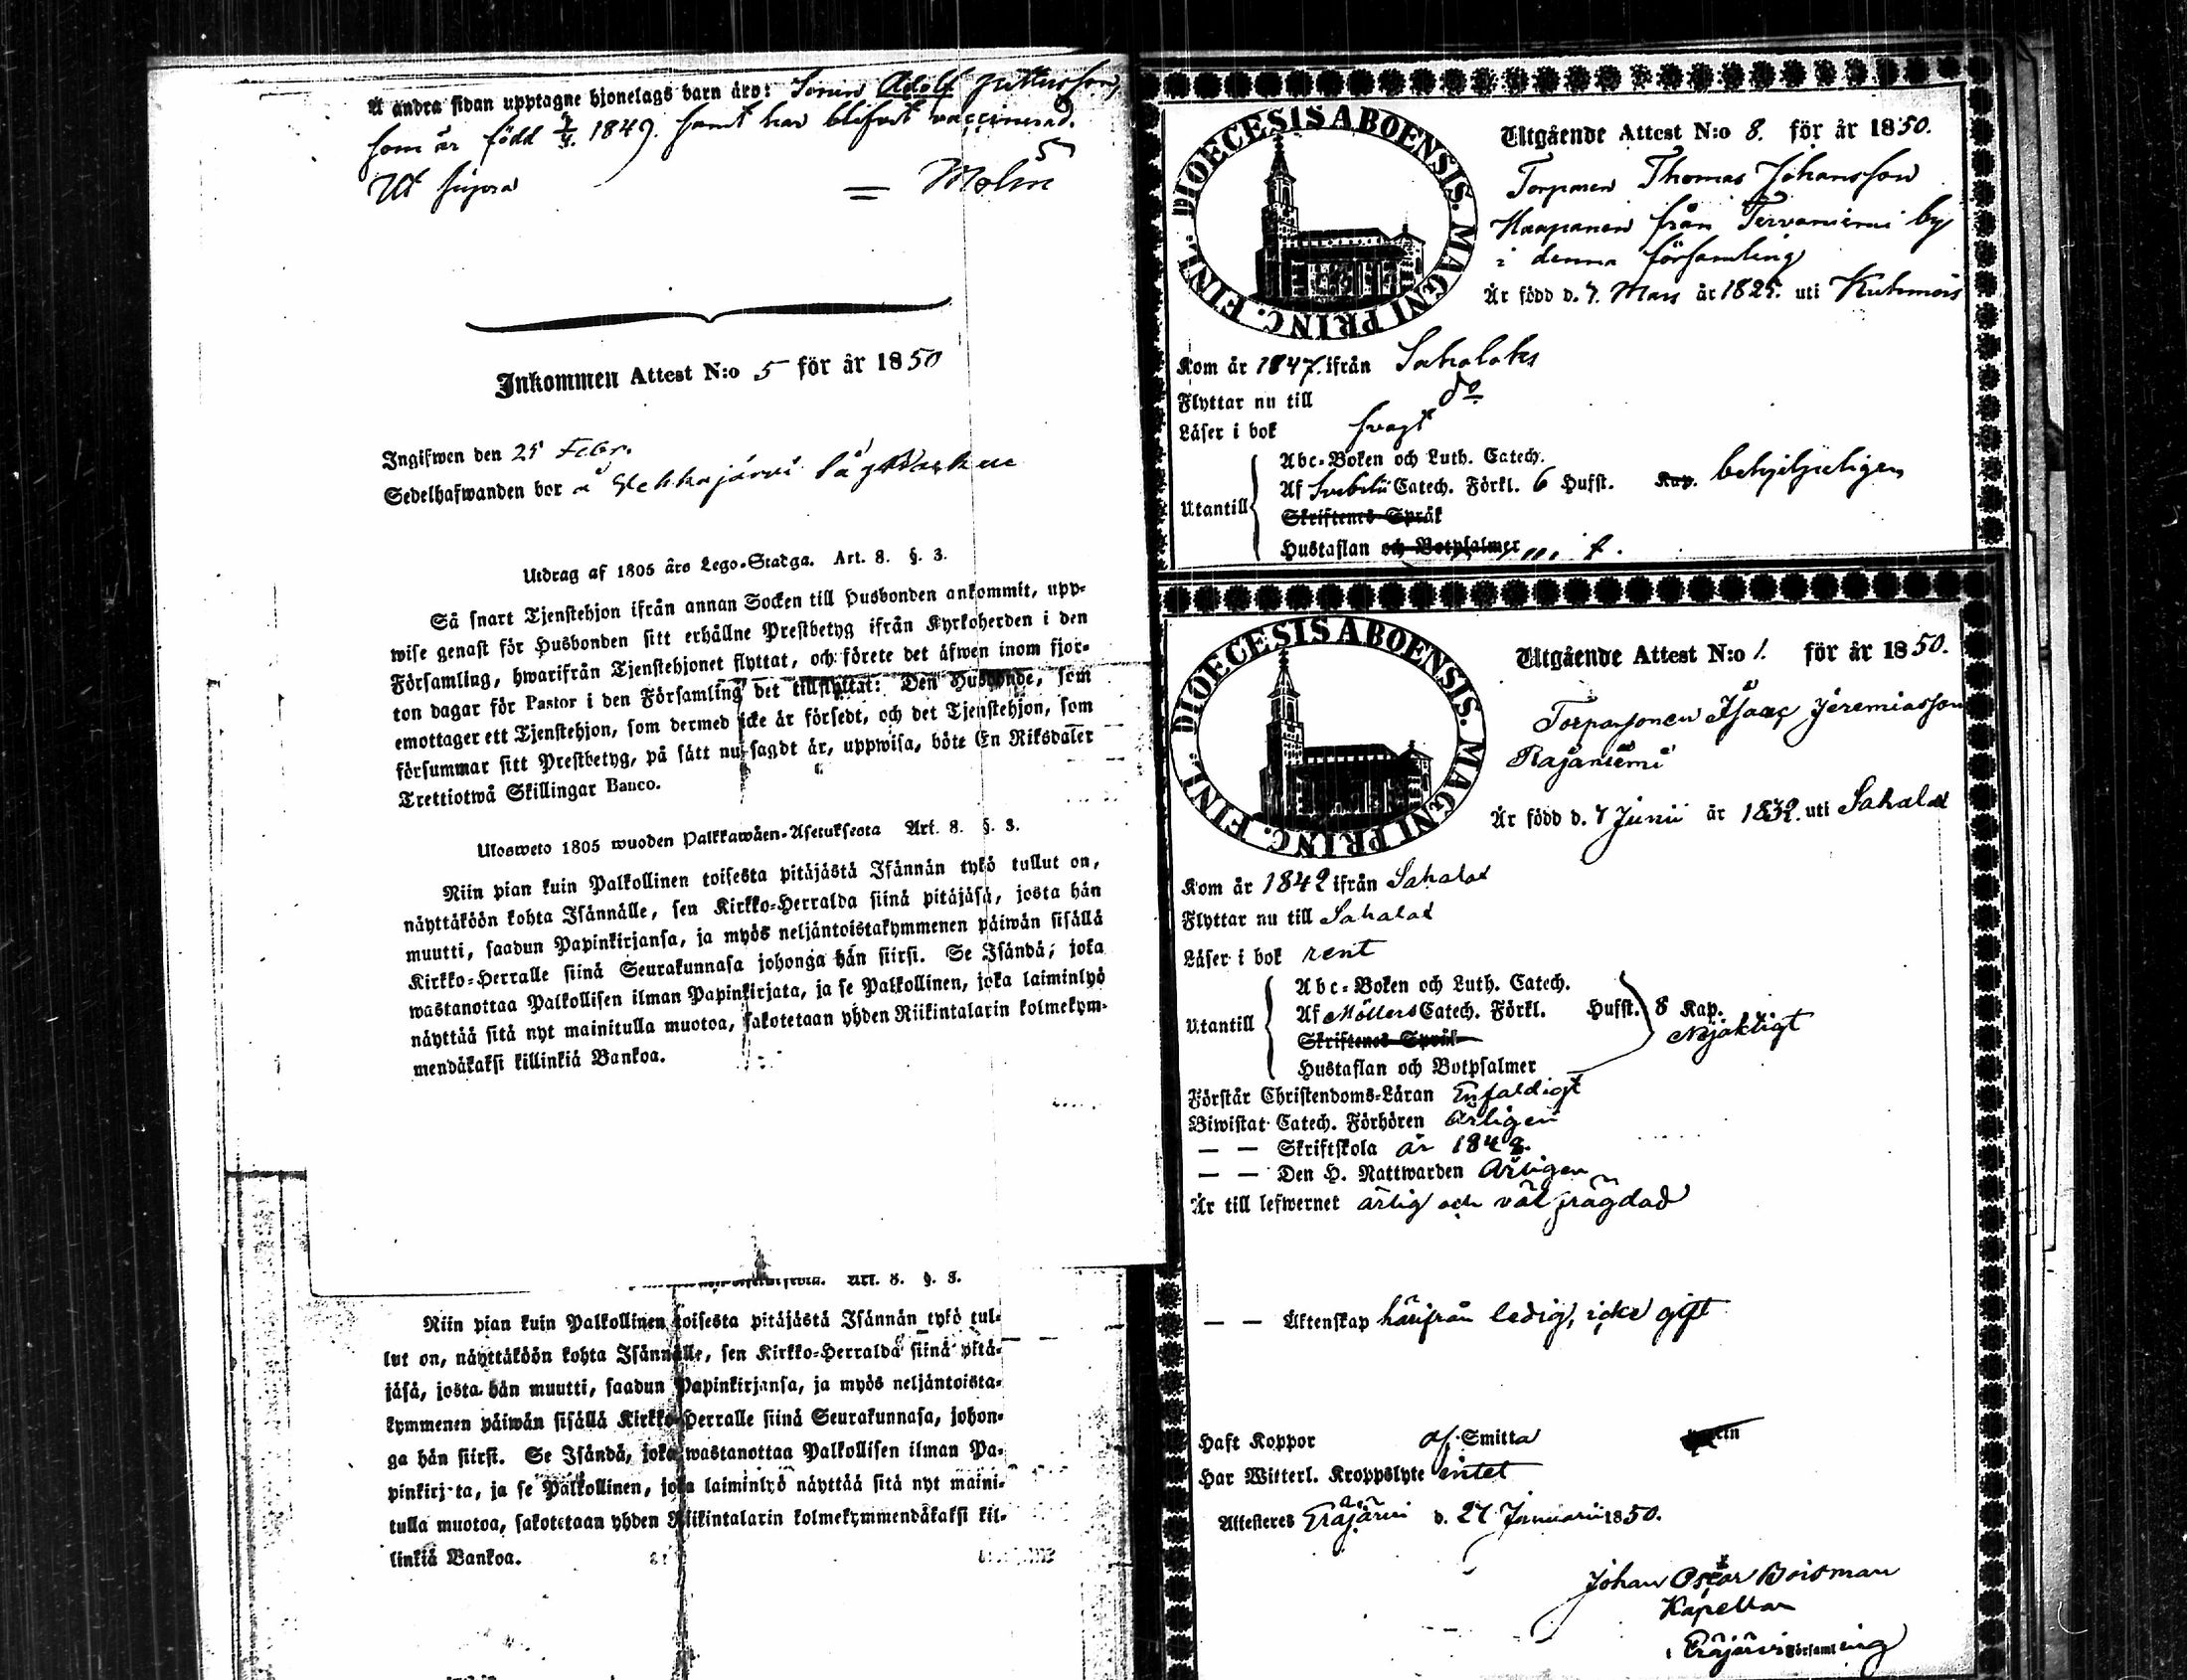 Å andra sidan upptagne hjonelags barn äro: Sonen Adolf
som är född 1849. samt har blifvit vaccinerad.
Ut supra = Molin
Inkommen Attest N:o 5 för år 1850
Ingifwen den 25 Febr.
Sedelhafwanden bor å
Utdrag af 1805 års Lego-Stadga. Art. 8. §. 3.
Så snart Tjenstehjon ifrån annan Socken till Husbonden ankommit, upp-
wise genast för Husbonden sitt erhållne Prestbetyg ifrån Kyrkoherden i den
Församling, hwarifrån Tjenstehjonet flyttat, och förete det äfwen inom fjor-
ton dagar för Pastor i den Församling det tillflyttat: Den Husbonde, som
emottager ett Tjenstehjon, som dermed icke är försedt, och det Tjenstehjon, som
försummar sitt Prestbetyg, på sätt nu sagdt är, uppwisa, böte En Riksdaler
Trettiotwå Skillingar Banco.
Ulosweto 1805 wuoden Palkkawäen-Asetuksesta Art. 8. §. 3.
Niin pian kuin Palkollinen toisesta pitäjästä Isännän tykö tullut on,
näyttäköön kohta Isännälle, sen Kirkko-Herralda siinä pitäjäsä, josta hän
muutti, saadun Papinkirjansa, ja myös neljäntoistakymmenen päiwän sisällä
Kirkko-Herralle siinä Seurakunnasa johonga hän siirsi. Se Isändä, joka
wastanottaa Palkollisen ilman Papinkirjata, ja se Palkollinen, joka laiminlyö
näyttää sitä nyt mainitulla muotoa, sakotetaan yhden Riikintalarin kolmekym-
mendäkaksi killinkiä Bankoa.
Art. 8. §. 3.
Niin pian kuin Palkollinen toisesta pitäjästä Isännän tykö tul-
lut on, näyttäköön kohta Isännälle, sen Kirkko-Herralda siinä pitä-
jäsä, josta hän muutti, saadun Papinkirjansa, ja myös neljäntoista-
kymmenen päiwän sisällä Kirkko-Herralle siinä Seurakunnasa, johon-
ga hän siirsi. Se Isändä, joka wastanottaa Palkollisen ilman Pa-
pinkirjata, ja se Palkollinen, joka laiminlyö näyttää sitä nyt maini-
tulla muotoa, sakotetaan yhden Riikintalarin kolmekymmendäkaksi kil-
linkiä Bankoa.
DIOECESIS ABOENSIS. MAGNI PRINC. FINL.
Utgående Attest N:o 8. för år 1850.
Torparen Thomas Johansson
Haapanen från Tervaniemi by
i denna församling
Är född d. 7. Mars år 1825. uti Kuhmois
Kom år 1847. ifrån Sahalaks
Flyttar nu till do
Läser i bok svagt
Utantill
Abc-Boken och Luth. Catech.
Af Svebelii Catech. Förkl. 6 Hufst. Kap. behjelpeligen
Skriftenes Språk
Hustaflan och Botpsalmer
DIOECESIS ABOENSIS. MAGNI PRINC. FINL.
Utgående Attest N:o 1. för år 1850.
Torparsonen Isaac Jeremiasson
Rajaniemi
Är född d. 7 Junii år 1832. uti Sahalax
Kom år 1842 ifrån Sahalax
Flyttar nu till Sahalax
Läser i bok rent
Utantill
Abc-Boken och Luth. Catech.
Af Möllers Catech. Förkl. Hufst. 8 Kap.
Skriftenes Språk Nöjaktigt
Hustaflan och Botpsalmer
Förstår Christendoms-Läran Enfaldigt
Biwistat Catech. Förhören Årligen
— — Skriftskola år 1848.
— — Den H. Nattwarden Årligen
Är till lefwernet ärlig och väl frägdad
— — Äktenskap härifrån ledig, icke gift
Haft Koppor af Smitta
Har Witterl. Kroppslyte intet
Attesteres Eräjärvi d. 27 Januarii 1850.
Johan Oscar Boisman
Kapellan
i Eräjärvi Församling